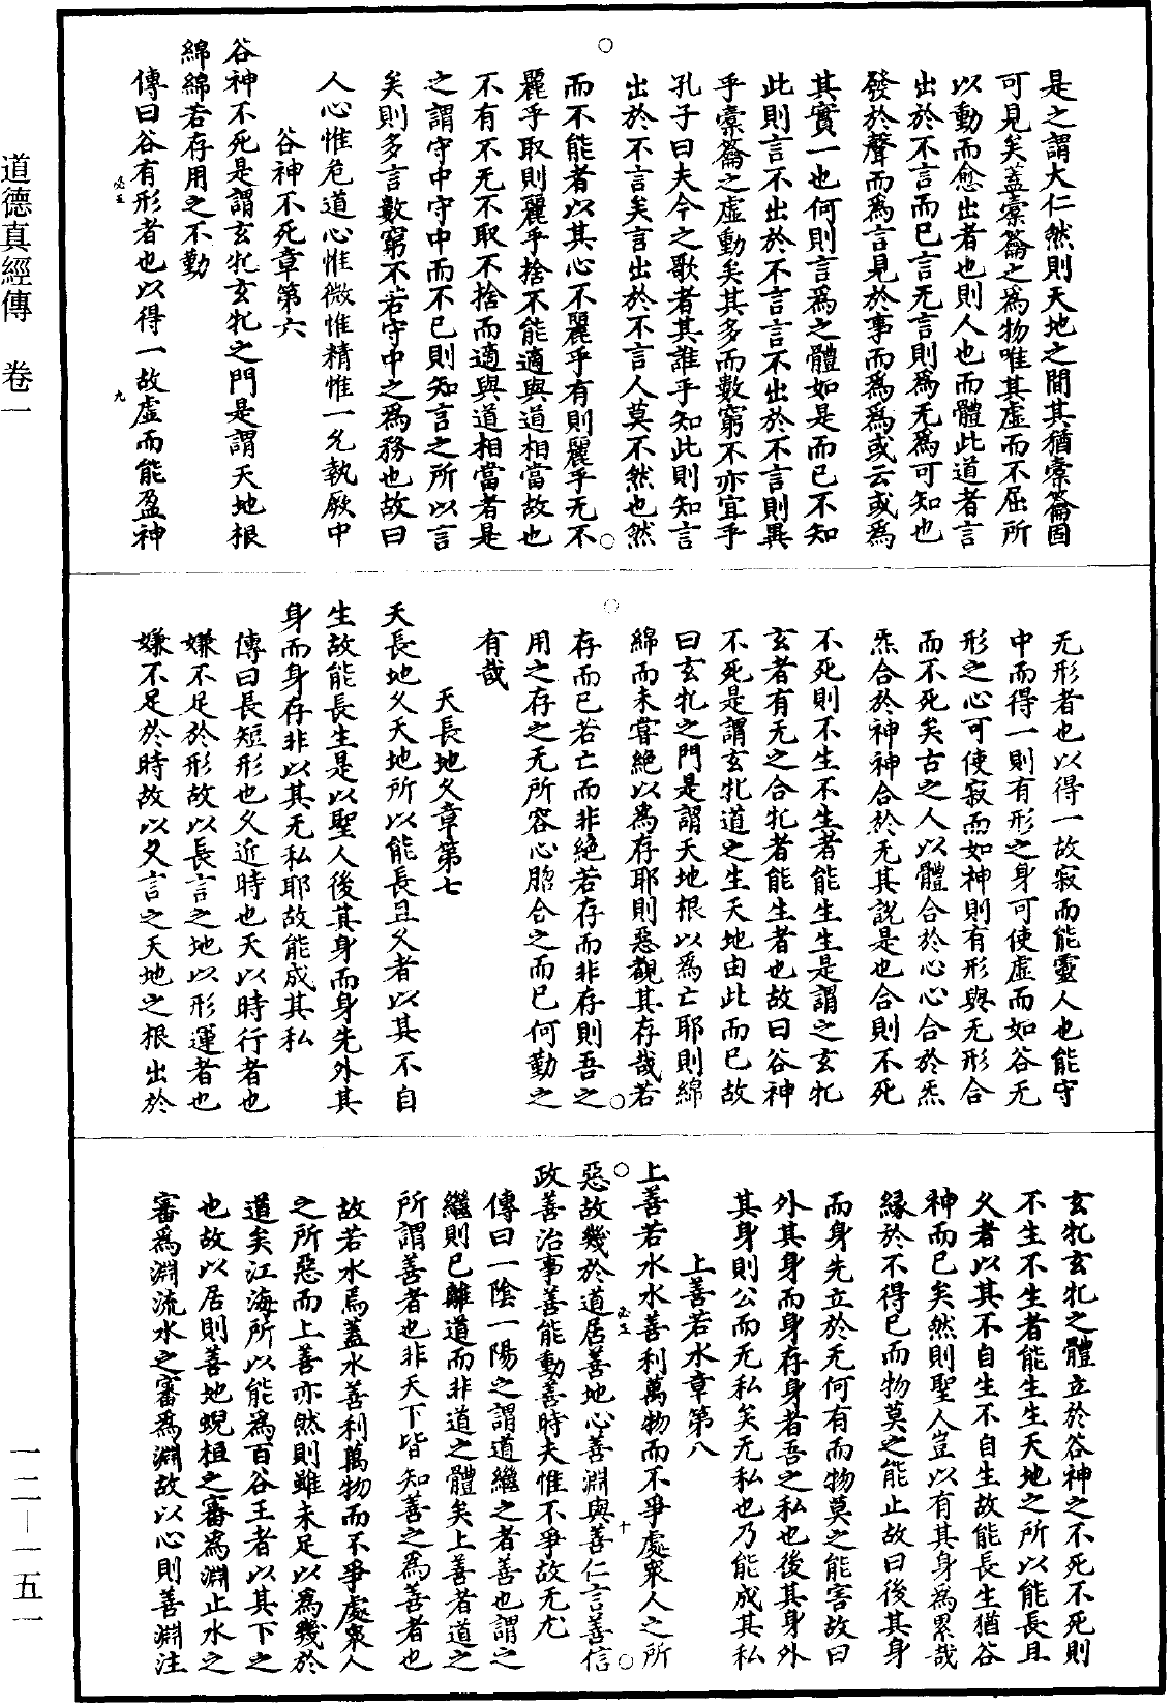 是之謂大仁然則天地之間其猶橐籥固
可見矣蓋橐籥之爲物唯其虛而不屈所
以動而愈出者也則人也而體此道者言
出於不言而已言无言則爲无爲可知也
發於聲而爲言見於事而爲爲或云或爲
其實一也何則言爲之體如是而已不知
此則言不出於不言言不出於不言則異
乎橐籥之虛動矣其多而數窮不亦宜乎
孔子曰夫今之歌者其誰乎知此則知言
出於不言矣言出於不言人莫不然也然
而不能者以其心不麗乎有則麗乎无不
麗乎取則麗乎捨不能適與道相當故也
不有不无不取不捨而適與道相當者是
之謂守中守中而不已則知言之所以言
矣則多言數窮不若守中之爲務也故曰
人心惟危道心惟微惟精惟一允執厥中
谷神不死章第六
谷神不死是謂玄牝玄牝之門是謂天地根
綿綿若存用之不勤
傳曰谷有形者也以得一故虛而能盈神
无形者也以得一故寂而能靈人也能守
中而得一則有形之身可使虛而如谷无
形之心可使寂而如神則有形與无形合
而不死矣古之人以體合於心心合於炁
炁合於神神合於无其說是也合則不死
不死則不生不生者能生生是謂之玄牝
玄者有无之合牝者能生者也故曰谷神
不死是謂玄牝道之生天地由此而已故
曰玄牝之門是謂天地根以爲亡耶則綿
綿而未嘗絕以爲存耶則惡覩其存哉若
存而已若亡而非絕若存而非存則吾之
用之存之无所容心脗合之而已何勤之
有哉
天長地久章第七
天長地久天地所以能長且久者以其不自
生故能長生是以聖人後其身而身先外其
身而身存非以其无私耶故能成其私
傳曰長短形也久近時也天以時行者也
嫌不足於形故以長言之地以形運者也
嫌不足於時故以久言之天地之根出於
玄牝玄牝之體立於谷神之不死不死則
不生不生者能生生天地之所以能長且
久者以其不自生不自生故能長生猶谷
神而已矣然則聖人豈以有其身爲累哉
緣於不得已而物莫之能止故曰後其身
而身先立於无何有而物莫之能害故曰
外其身而身存身者吾之私也後其身外
其身則公而无私矣无私也乃能成其私
上善若水章第八
上善若水水善利萬物而不爭處衆人之所
惡故幾於道居善地心善淵與善仁言善信
政善治事善能動善時夫惟不爭故无尤
傳曰一陰一陽之謂道繼之者善也謂之
繼則已離道而非道之體矣上善者道之
所謂善者也非天下皆知善之爲善者也
故若水焉蓋水善利萬物而不爭處衆人
之所惡而上善亦然則雖未足以爲幾於
道矣江海所以能爲百谷王者以其下之
也故以居則善地蜺桓之審爲淵止水之
審爲淵流水之審爲淵故以心則善淵注
道德真經傳 卷一
必五
九
必五
十
一二—一五一